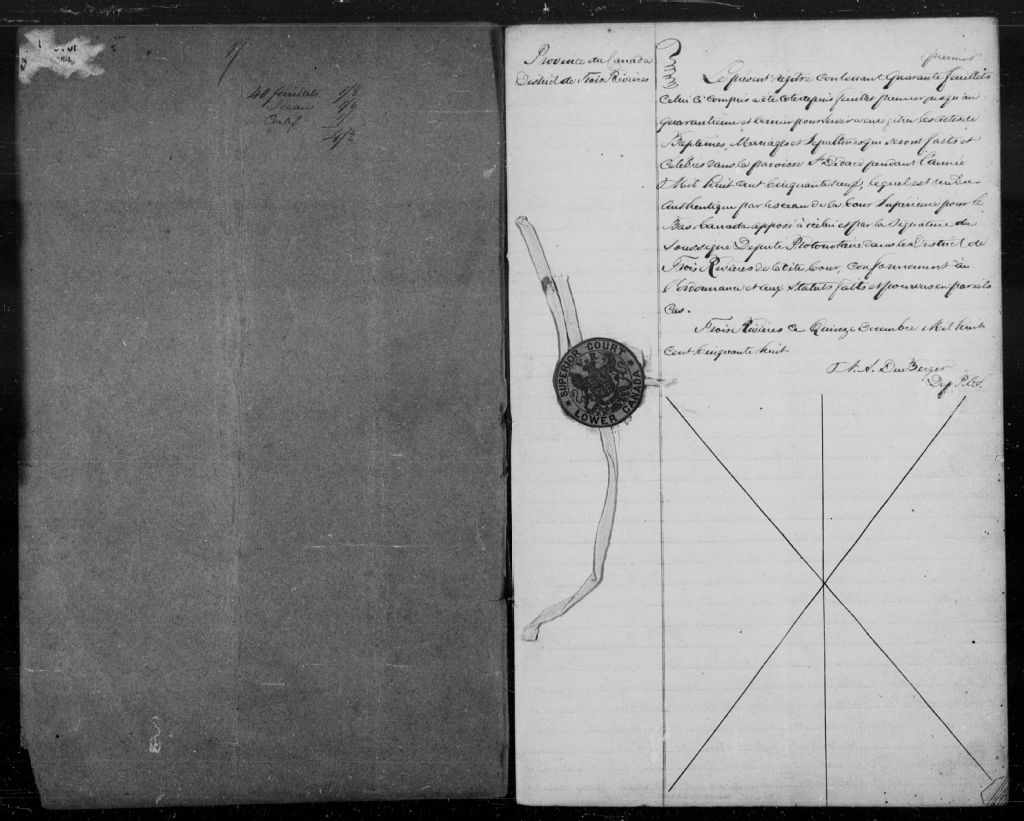 40 feuillets 1/8
Sceau 1/6
Certif 1/
4/2
Province du Canada
District de Trois Rivières
SUPERIOR COURT
V R
LOWER CANADA
premier
Le présent régitre contenant Quarante feuillets
Celui Ci compris a été coté depuis feuillet premier jusqu'au
quarantième et dernier pour servir à enrégitrer les actes de
Baptêmes, Mariages et Sépultures qui seront faits et
Célébrés dans la paroisse St Didace pendant l'année
Mil huit cent Cinquante neuf, lequel est rendu
authentique par le sceau de la Cour Supérieure pour le
Bas Canada apposé à icelui et par la Signature du
Soussigné Député Protonotaire dans le District de
Trois Rivières de la dite Cour, conformément à
l'ordonnance et aux Statuts faits et pourvus en pareils
Cas.
Trois Rivières ce Quinze Décembre Mil huit
cent Cinquante huit
A. DuBerger
Dep P.C.S.